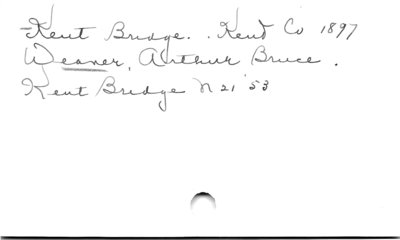 Kent Bridge. Kent Co 1897
Weaver, Arthur Bruce.
Kent Bridge N 21 '53